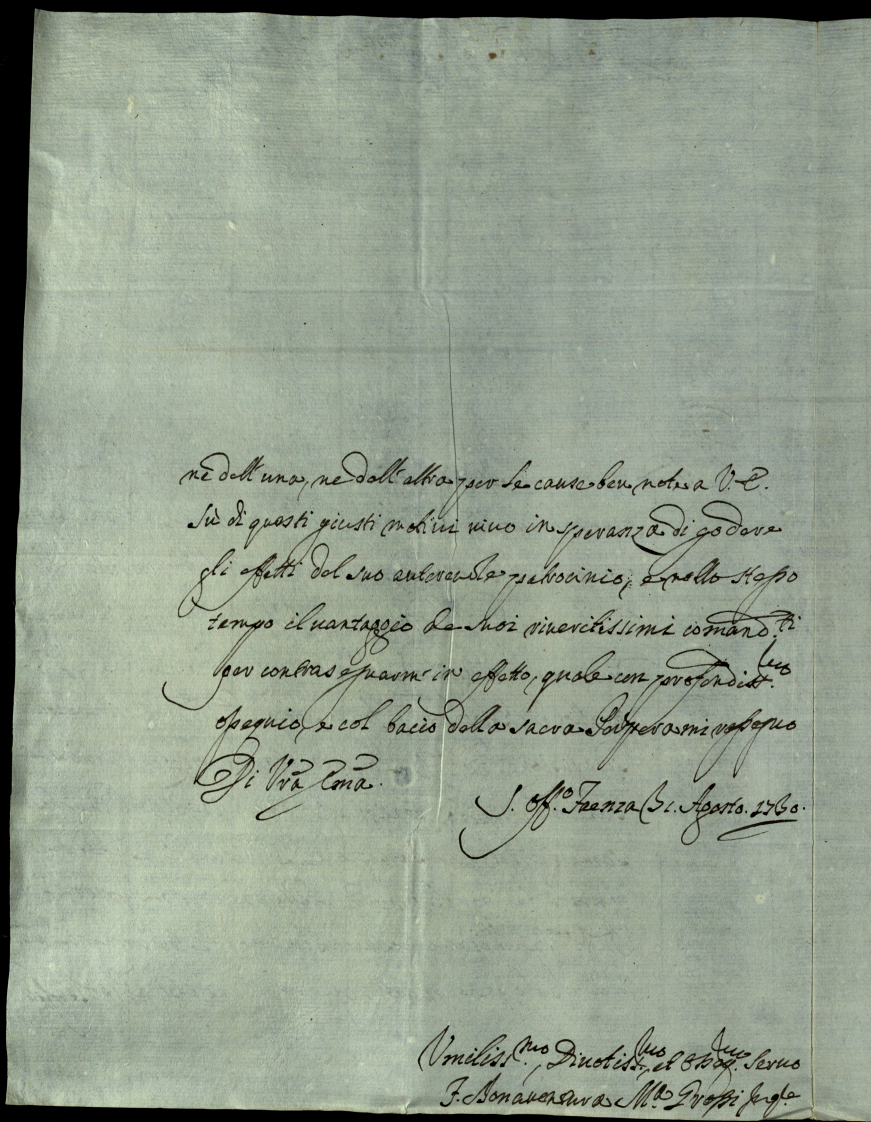 ne dell'una, ne dell'altra per le cause ben note a V. E.
Sù di questi giusti motivi vivo in speranza di godere
gli effetti del suo autorevole patrocinio, e nello stesso
tempo il vantaggio de suoi riveritissimi comand.ti
per contrasegnarmi in effetto, quale con profondiss.mo
ossequio, e col bacio della sacra Porpora mi rassegno
Di Vrã Emã
S. Off.o Faenza 31. Agosto. 1730.
Umiliss.mo, Divotiss.mo, et Obbg.mo Servo
F. Bonaventura M.a Grossi Inq.re